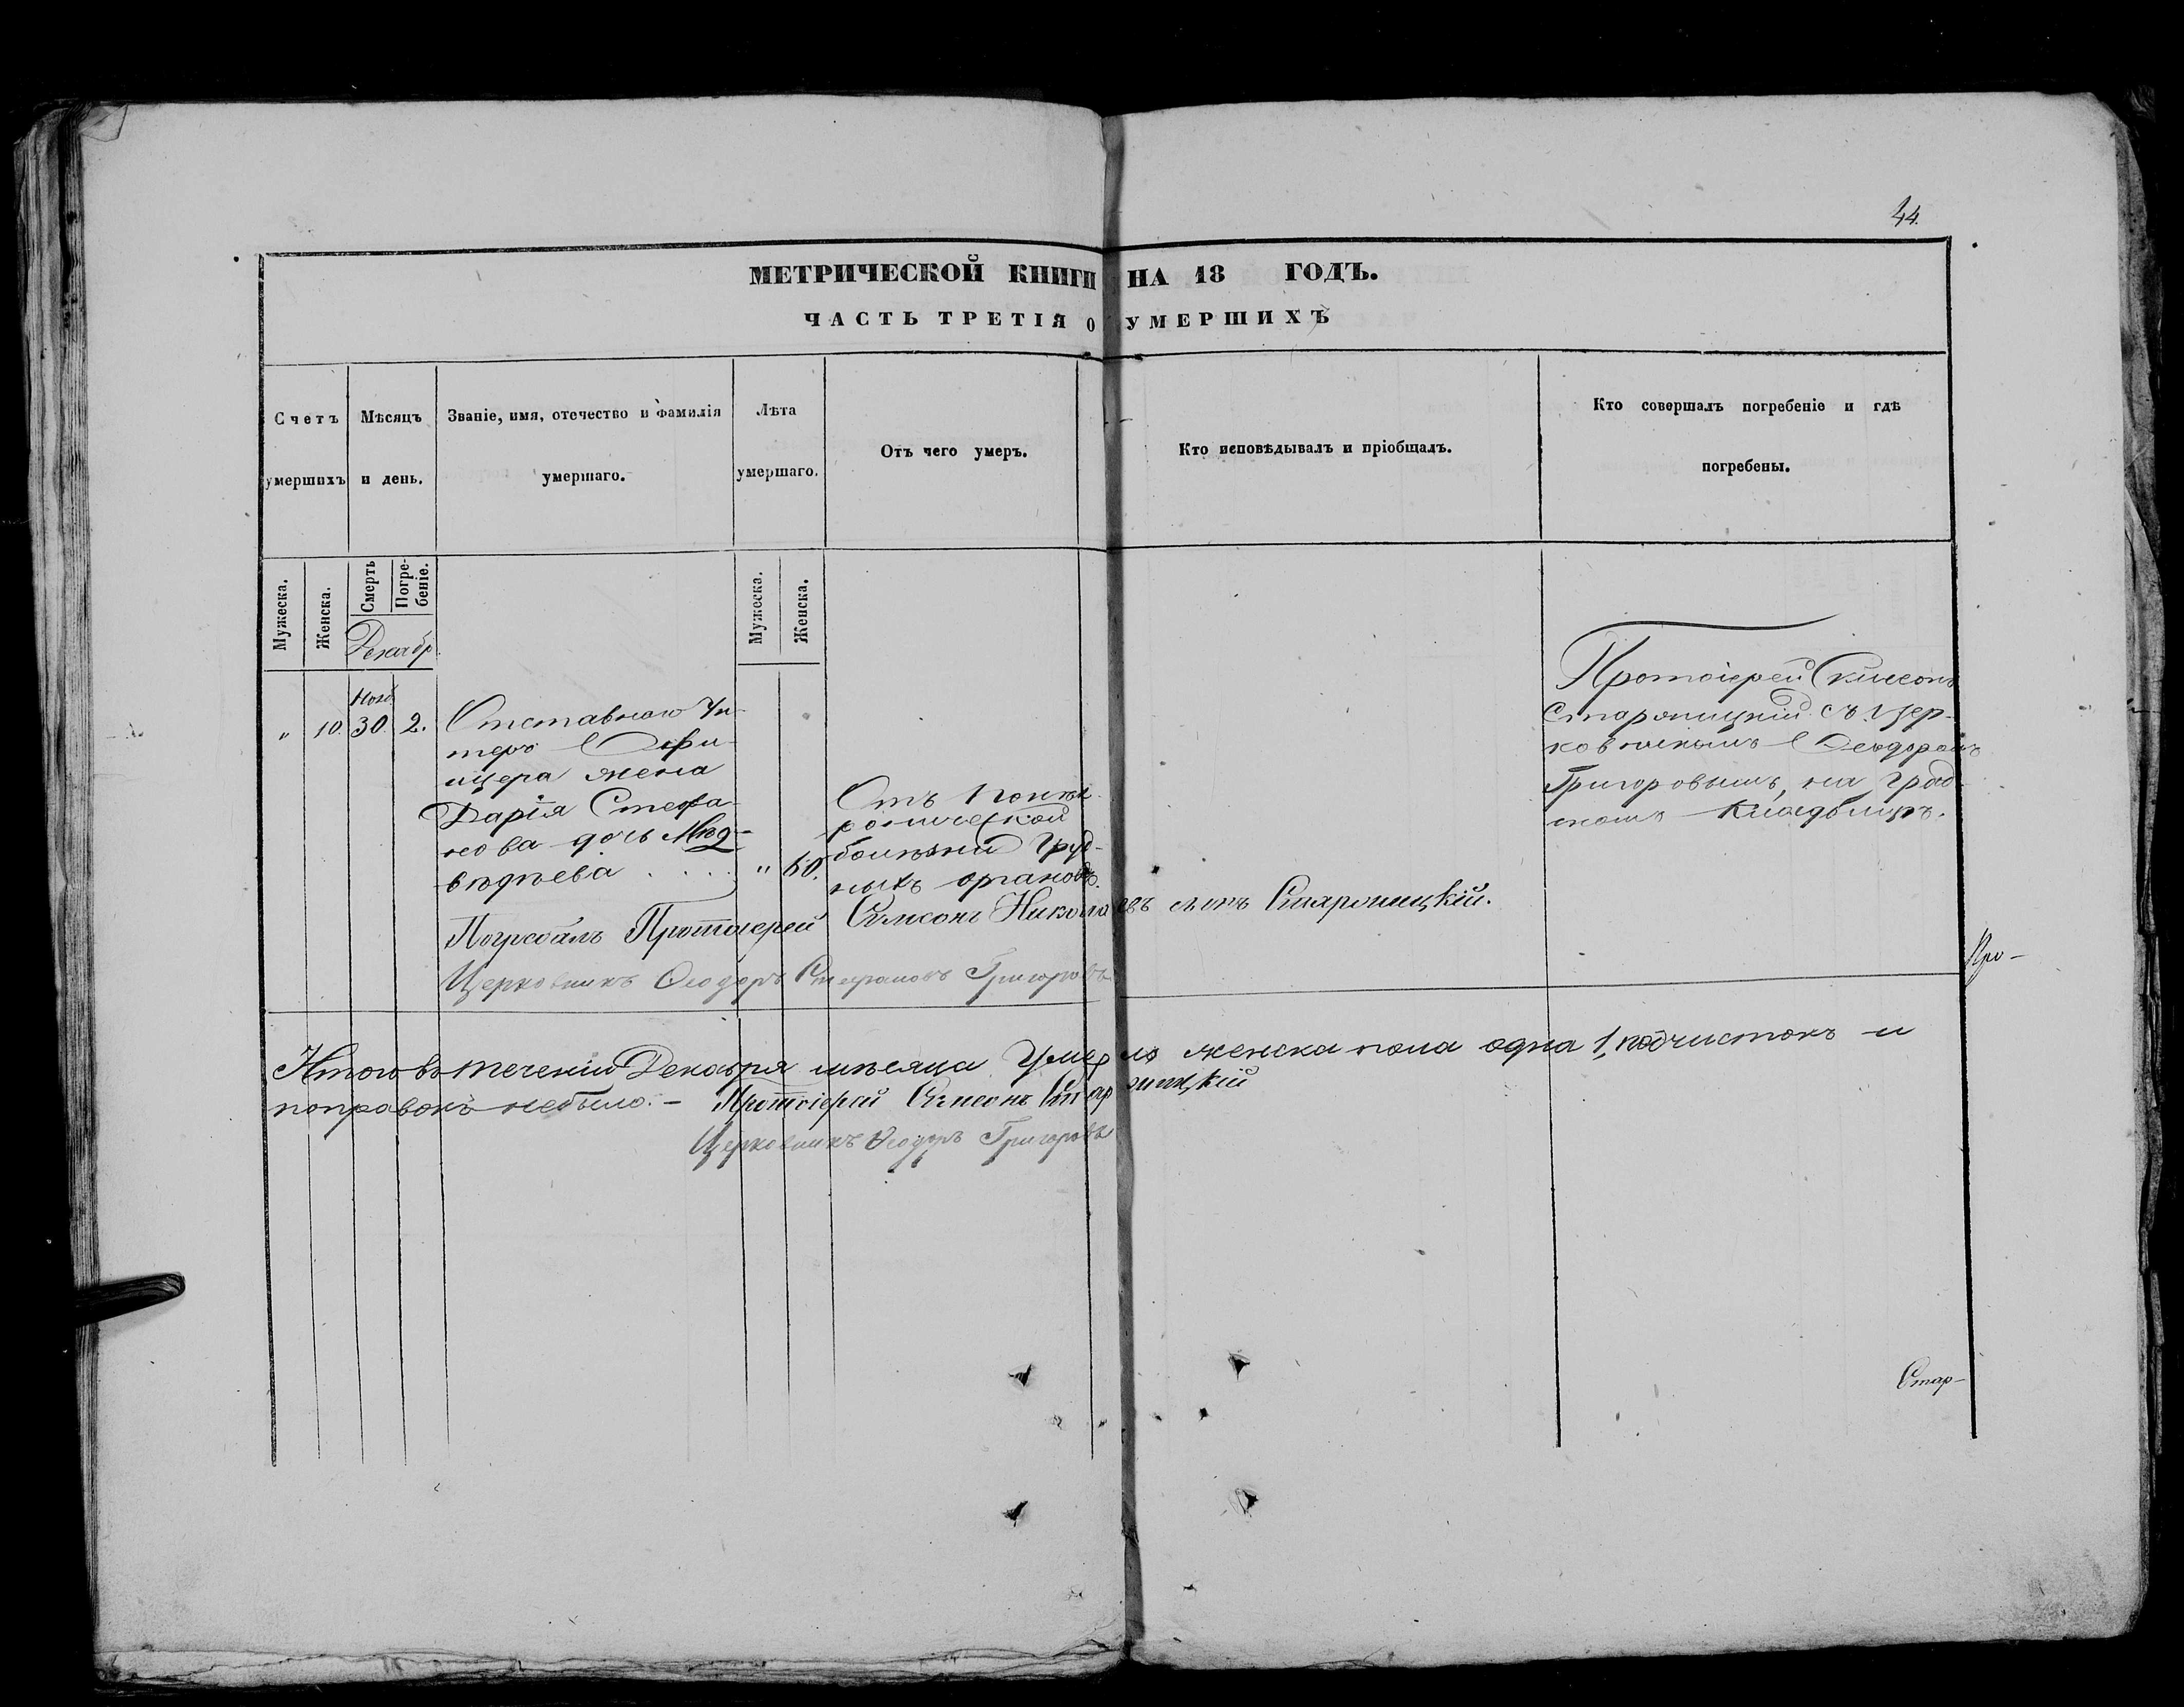 44.
МЕТРИЧЕСКОЙ КНИГИ НА 18 ГОДЪ.
ЧАСТЬ ТРЕТІЯ О УМЕРШИХЪ
Счетъ умершихъ
Мѣсяцъ и день.
Званіе, имя, отечество и фамилія умершаго.
Лѣта умершаго.
Отъ чего умеръ.
Кто исповѣдывалъ и пріобщалъ.
Кто совершалъ погребеніе и гдѣ погребены.
Мужеска.
Женска.
Смерть
Погребеніе.
Мужеска.
Женска.
Декабр.
Нояб.
" 10. 30. 2.
Отставного Ун-
теръ Офи-
цера жена
Дарія Стефа-
нова дочь Мед-
вѣдѣева . . . .
" 60.
Отъ
болѣзни груд-
ныхъ органовъ.
Протоіерей Симеонъ
Старопицкій съ цер-
ковникомъ Ѳеодоромъ
Григоровымъ, на град-
скомъ кладбищѣ.
Погребалъ Протоіерей Симеонъ Николаевъ сынъ Старопицкій.
Церковникъ Ѳеодоръ Стефановъ Григоровъ
Про-
Итого въ теченіи Декабря мѣсяца Умерло женска пола одна 1, подчистокъ и
поправокъ небыло. - Протоіерей Симеонъ Старопицкій
Церковникъ Ѳеодоръ Григоровъ
Стар-